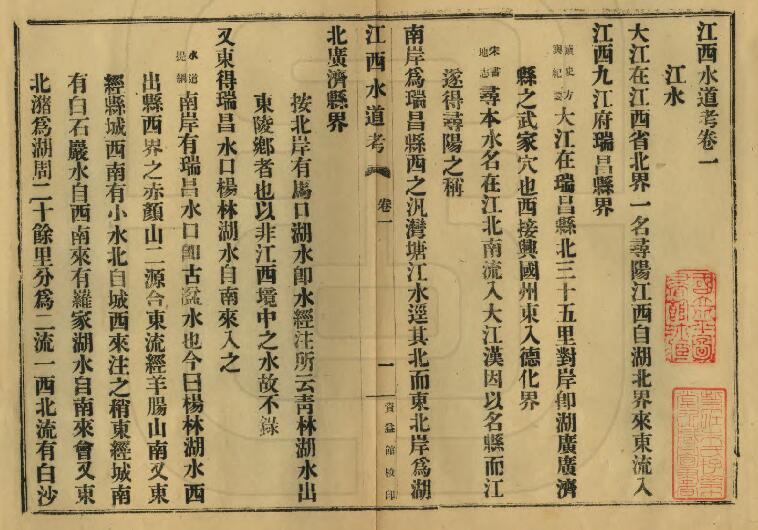 江西水道考卷一
江水
大江在江西省北界一名尋陽江西自湖北界來東流入
江西九江府瑞昌縣界
讀史方輿紀要大江在瑞昌縣北三十五里對岸卽湖廣廣濟
縣之武家穴也西接興國州東入德化界
宋書地志尋本水名在江北南流入大江漢因以名縣而江
遂得尋陽之稱
南岸爲瑞昌縣西之汎灣塘江水逕其北而東北岸爲湖
江西水道考
卷一
一
資益館校印
北廣濟縣界
按北岸有馬口湖水卽水經注所云靑林湖水出
東陵鄕者也以非江西境中之水故不錄
又東得瑞昌水口楊林湖水自南來入之
水道提綱南岸有瑞昌水口卽古湓水也今曰楊林湖水西
出縣西界之赤顏山二源合東流經羊腸山南又東
經縣城西南有小水北自城西來注之稍東經城南
有白石巖水自西南來有羅家湖水自南來會又東
北瀦爲湖周二十餘里分爲二流一西北流有白沙